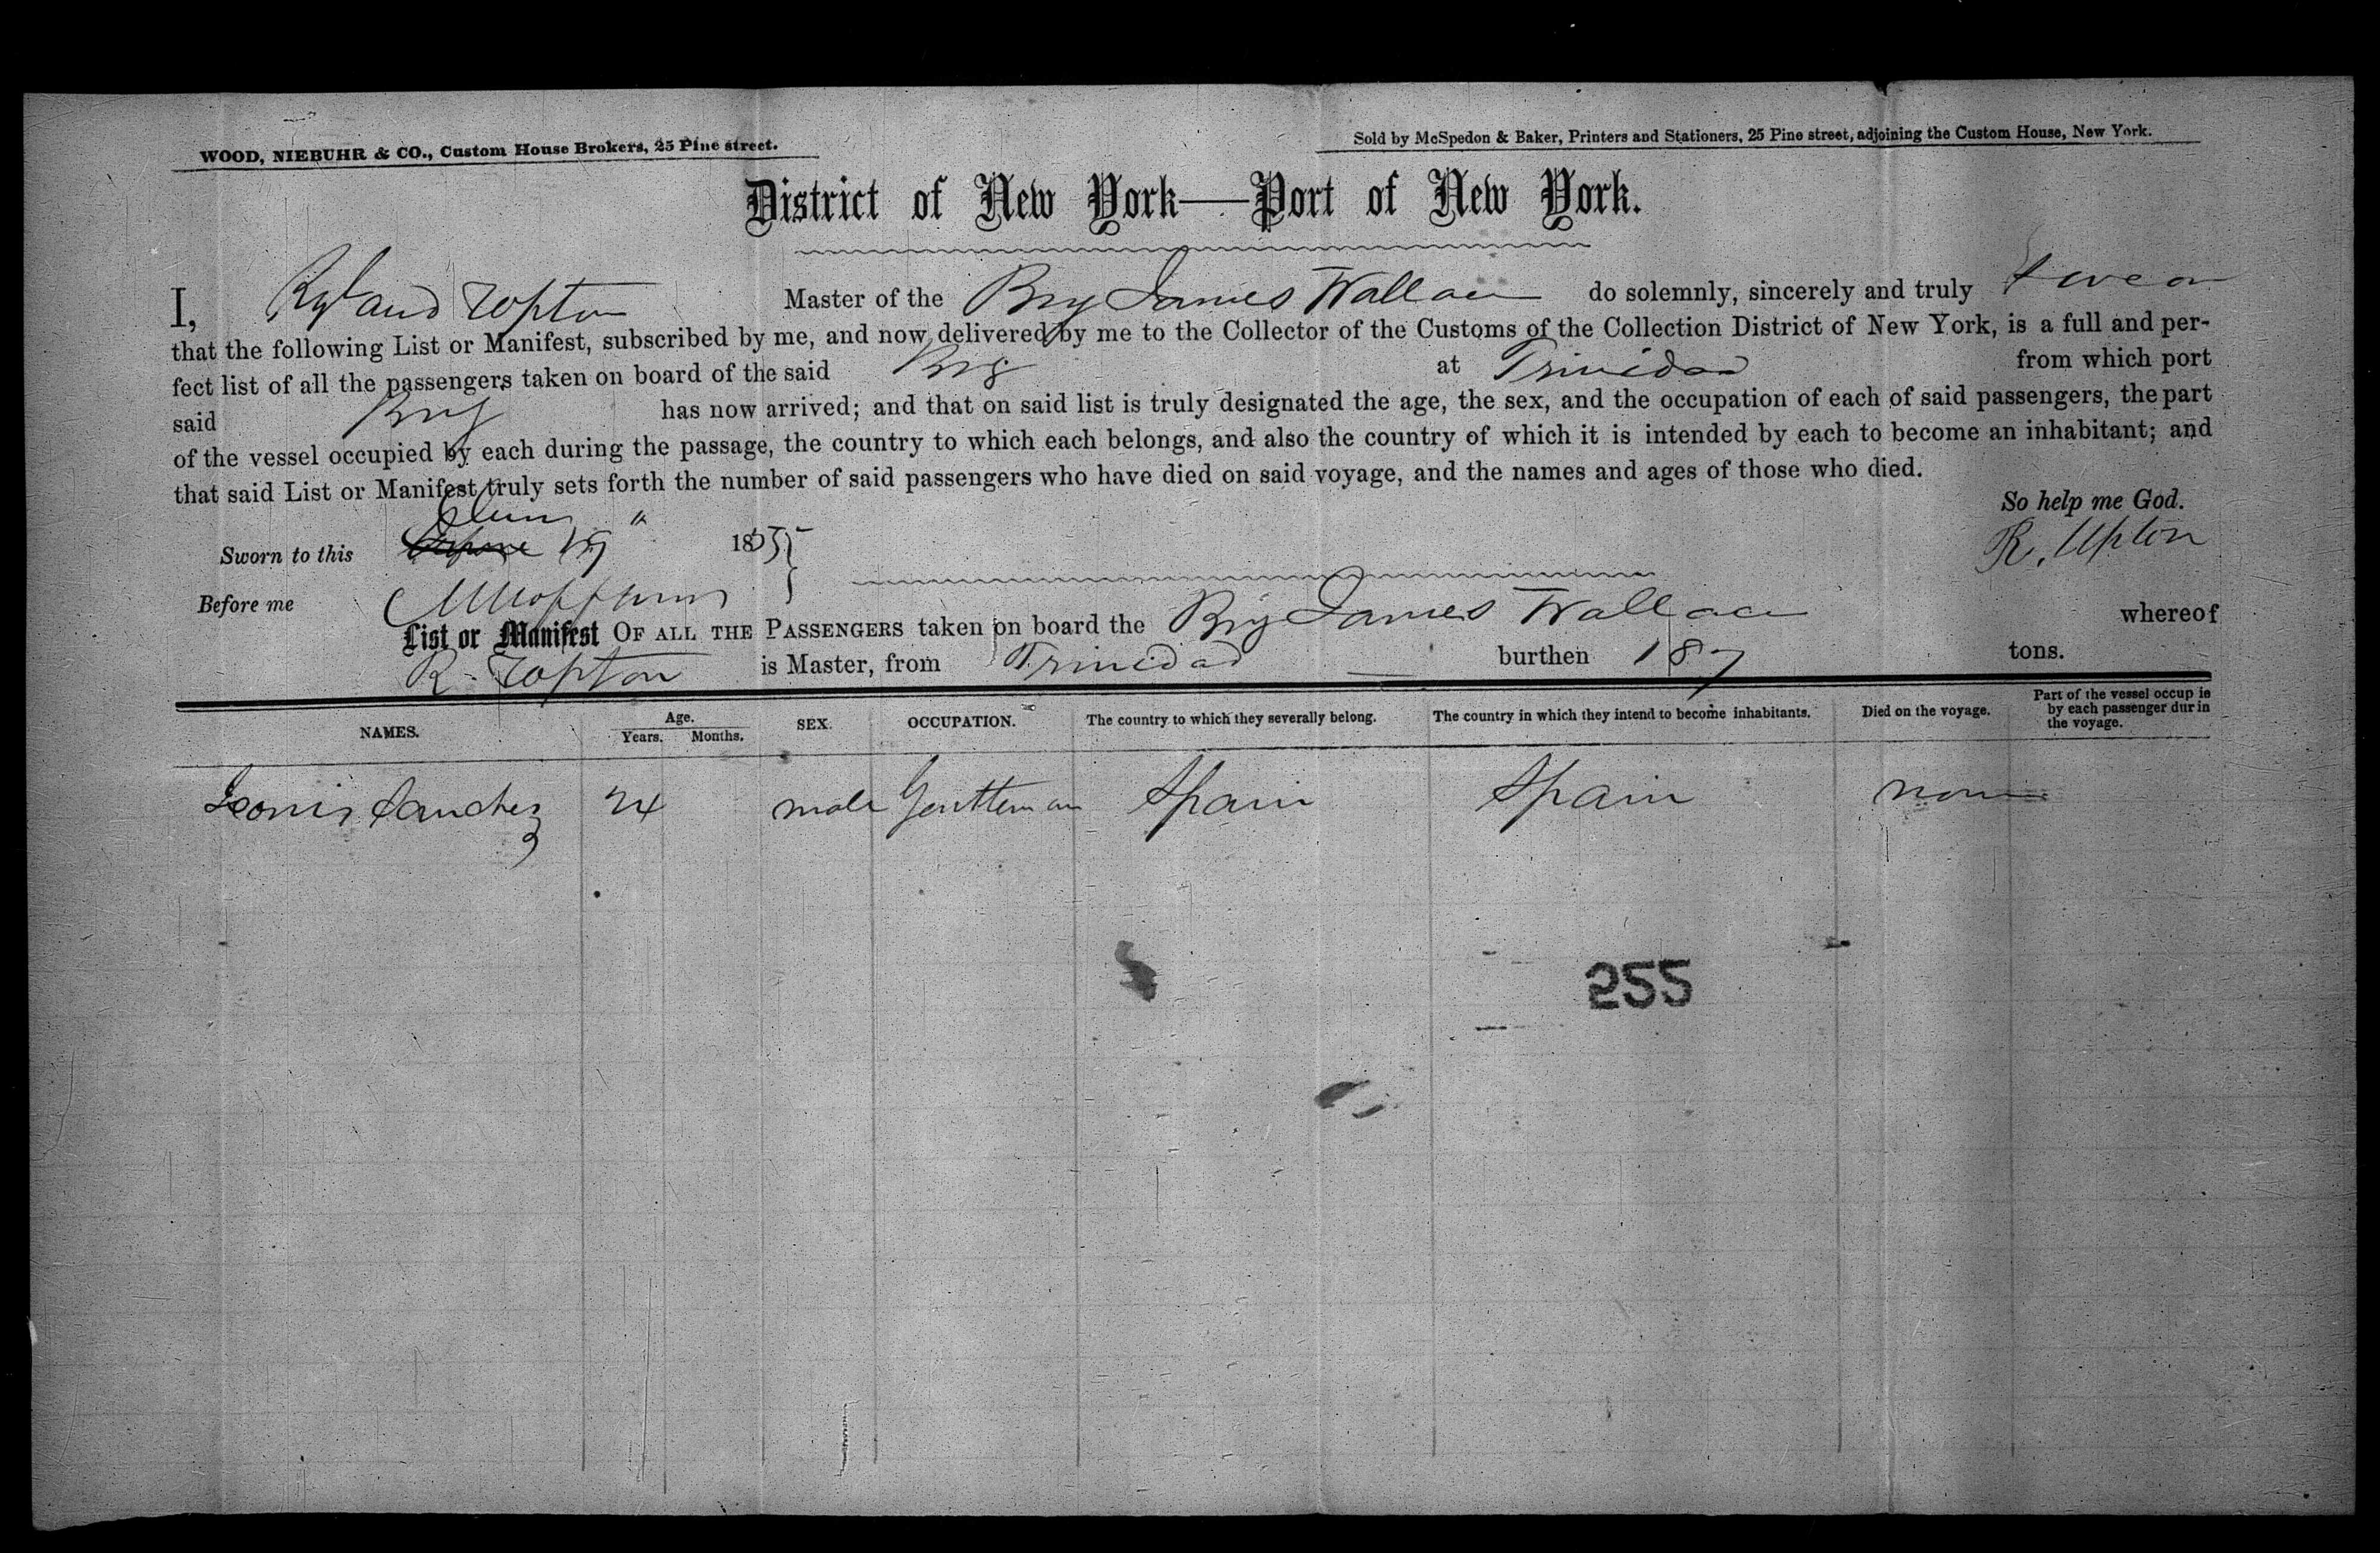 WOOD, NIEBUHR & CO., Custom House Brokers, 25 Pine street.
Sold by McSpedon & Baker, Printers and Stationers, 25 Pine street, adjoining the Custom House, New York.
District of New York—Port of New York.
I, Ryland Upton Master of the Brig James Wallace do solemnly, sincerely and truly swear
that the following List or Manifest, subscribed by me, and now delivered by me to the Collector of the Customs of the Collection District of New York, is a full and per-
fect list of all the passengers taken on board of the said Brig at Trinidad from which port
said Brig has now arrived; and that on said list is truly designated the age, the sex, and the occupation of each of said passengers, the part
of the vessel occupied by each during the passage, the country to which each belongs, and also the country of which it is intended by each to become an inhabitant; and
that said List or Manifest truly sets forth the number of said passengers who have died on said voyage, and the names and ages of those who died.
So help me God.
Sworn to this 1855
R. Upton
Before me
List or Manifest OF ALL THE PASSENGERS taken on board the Brig James Wallace whereof
R. Upton is Master, from Trinidad burthen 187 tons.
NAMES. Age. Years. Months. SEX. OCCUPATION. The country to which they severally belong. The country in which they intend to become inhabitants. Died on the voyage. Part of the vessel occup ie
by each passenger dur in
the voyage.
Sanchez 24 male Gentleman Spain Spain none
255